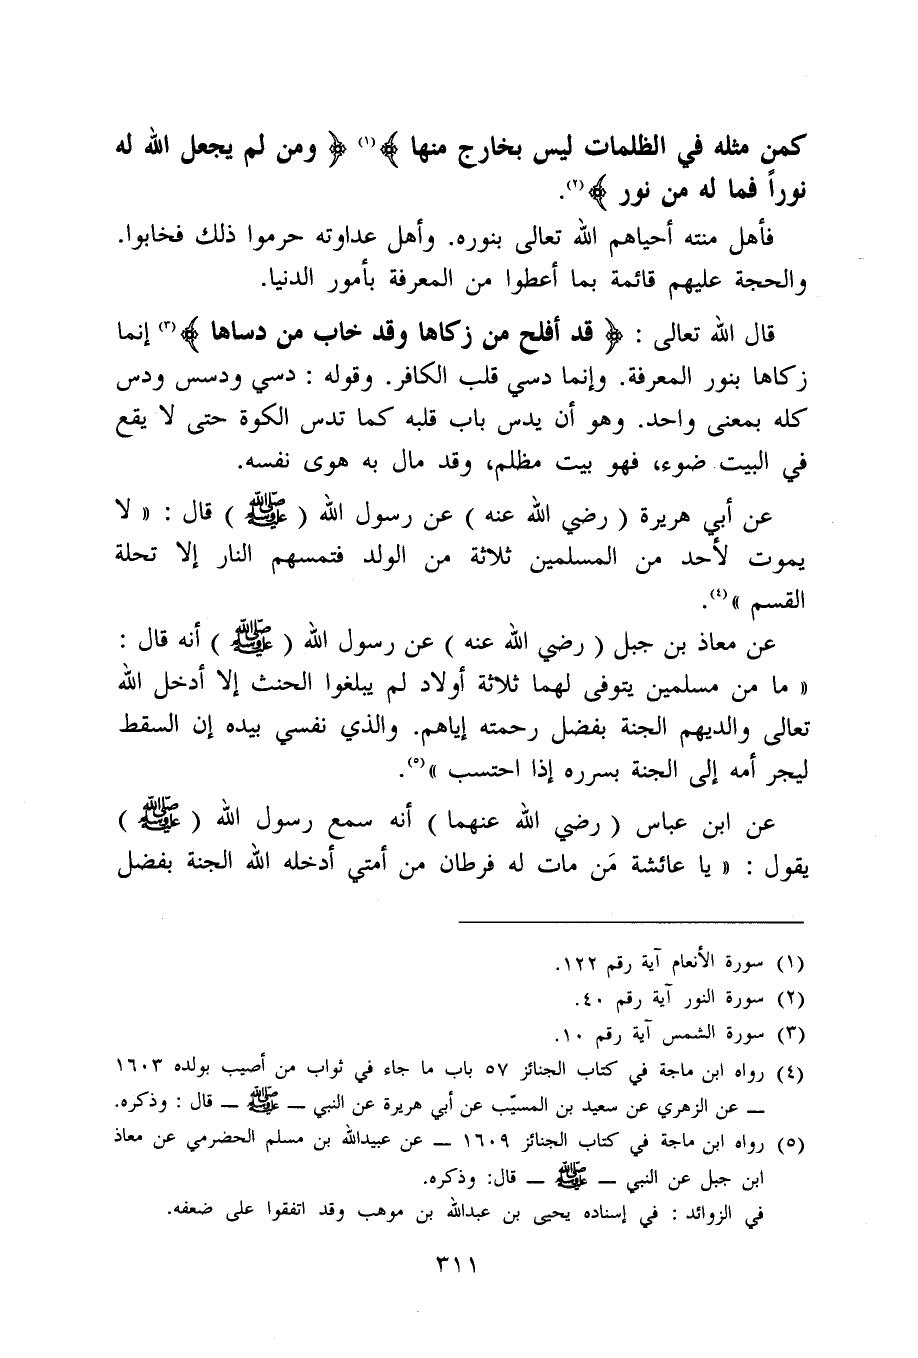 كمن مثله في الظلمات ليس بخارج منها ﴾(١) ﴿ ومن لم يجعل الله له
نوراً فما له من نور ﴾(٢).
فأهل منته أحياهم الله تعالى بنوره. وأهل عداوته حرموا ذلك فخابوا.
والحجة عليهم قائمة بما أعطوا من المعرفة بأمور الدنيا.
قال الله تعالى : ﴿ قد أفلح من زكاها وقد خاب من دساها ﴾(٣) إنما
زكاها بنور المعرفة. وإنما دسي قلب الكافر. وقوله : دسي ودسس ودس
كله بمعنى واحد. وهو أن يدس باب قلبه كما تدس الكوة حتى لا يقع
في البيت ضوء، فهو بيت مظلم، وقد مال به هوى نفسه.
عن أبي هريرة ( رضي الله عنه ) عن رسول الله ( ﷺ ) قال : « لا
يموت لأحد من المسلمين ثلاثة من الولد فتمسهم النار إلا تحلة
القسم »(٤).
عن معاذ بن جبل ( رضي الله عنه ) عن رسول الله ( ﷺ ) أنه قال :
« ما من مسلمين يتوفى لهما ثلاثة أولاد لم يبلغوا الحنث إلا أدخل الله
تعالى والديهم الجنة بفضل رحمته إياهم. والذي نفسي بيده إن السقط
ليجر أمه إلى الجنة بسرره إذا احتسب »(٥).
عن ابن عباس ( رضي الله عنهما ) أنه سمع رسول الله ( ﷺ )
يقول : « يا عائشة مَن مات له فرطان من أمتي أدخله الله الجنة بفضل
(١) سورة الأنعام آية رقم ١٢٢.
(٢) سورة النور آية رقم ٤٠.
(٣) سورة الشمس آية رقم ١٠.
(٤) رواه ابن ماجة في كتاب الجنائز ٥٧ باب ما جاء في ثواب من أصيب بولده ١٦٠٣
ــ عن الزهري عن سعيد بن المسيّب عن أبي هريرة عن النبي ــ ﷺ ــ قال : وذكره.
(٥) رواه ابن ماجة في كتاب الجنائز ١٦٠٩ ــ عن عبيدالله بن مسلم الحضرمي عن معاذ
ابن جبل عن النبي ــ ﷺ ــ قال: وذكره.
في الزوائد : في إسناده يحيى بن عبدالله بن موهب وقد اتفقوا على ضعفه.
٣١١